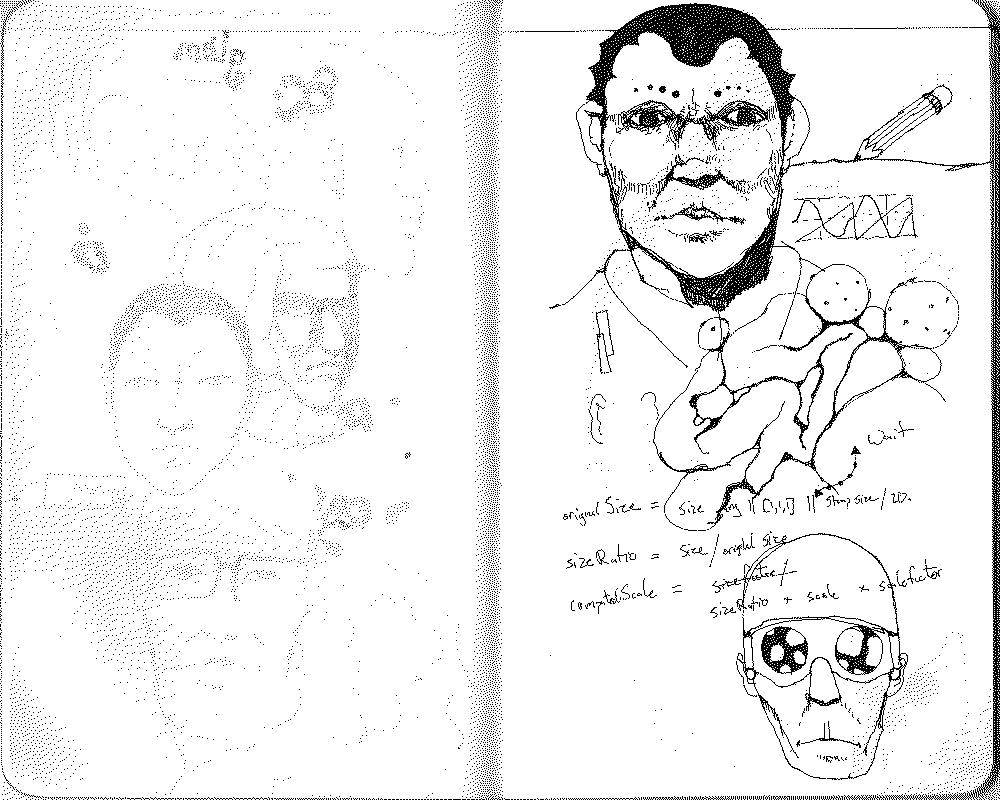 Wait
originalSize = size img || [1,1,1] || size / 2D.
sizeRatio = size / original size
computedScale = sizeRatio /
sizeRatio * scale * scalefactor